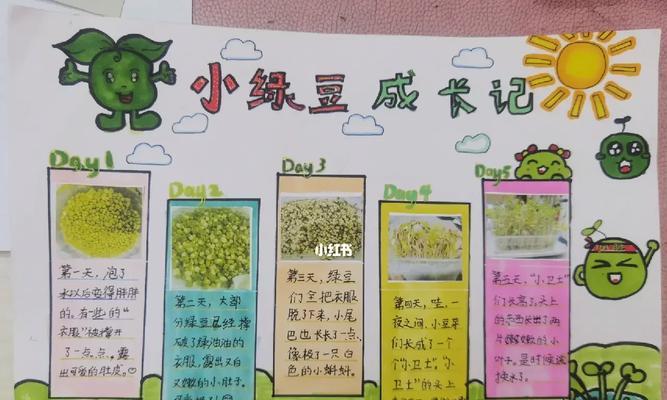 小绿豆成长记
Day1
第一天，泡了
水以后变得胖胖
的。有些的“
衣服”被撑开
了一点点，露
出可爱的肚皮。
Day2
第二天，大部
分绿豆已经撑
破了绿油油的
衣服，露出又白
又嫩的小肚子。
Day3
小红书
第三天，绿豆
们全把衣服
脱了下来，小尾
巴也长长了一点，
像极了一只白
色的小蝌蚪。
Day4
第四天，哇，一
夜之间，小豆芽
们长成了一个
个“小卫士”，小
卫士”的头上
Day5
第五天，“小卫士”
们长高了，头上
的东西长出了两
片嫩嫩的小
叶子。是时候该
换水了。